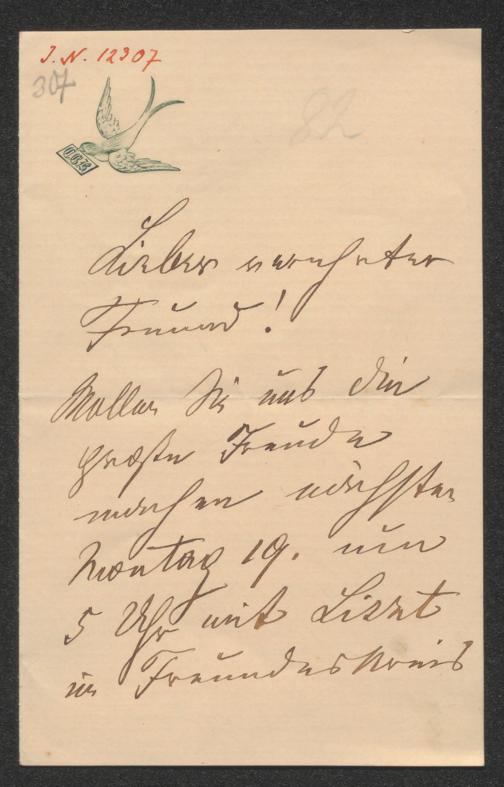 I. N. 12307
307
82
Lieber verehrter
Freund!
Wollen Sie uns die
große Freude
machen nächsten
Montag 19. um
5 Uhr mit Liszt
in Freundeskreis